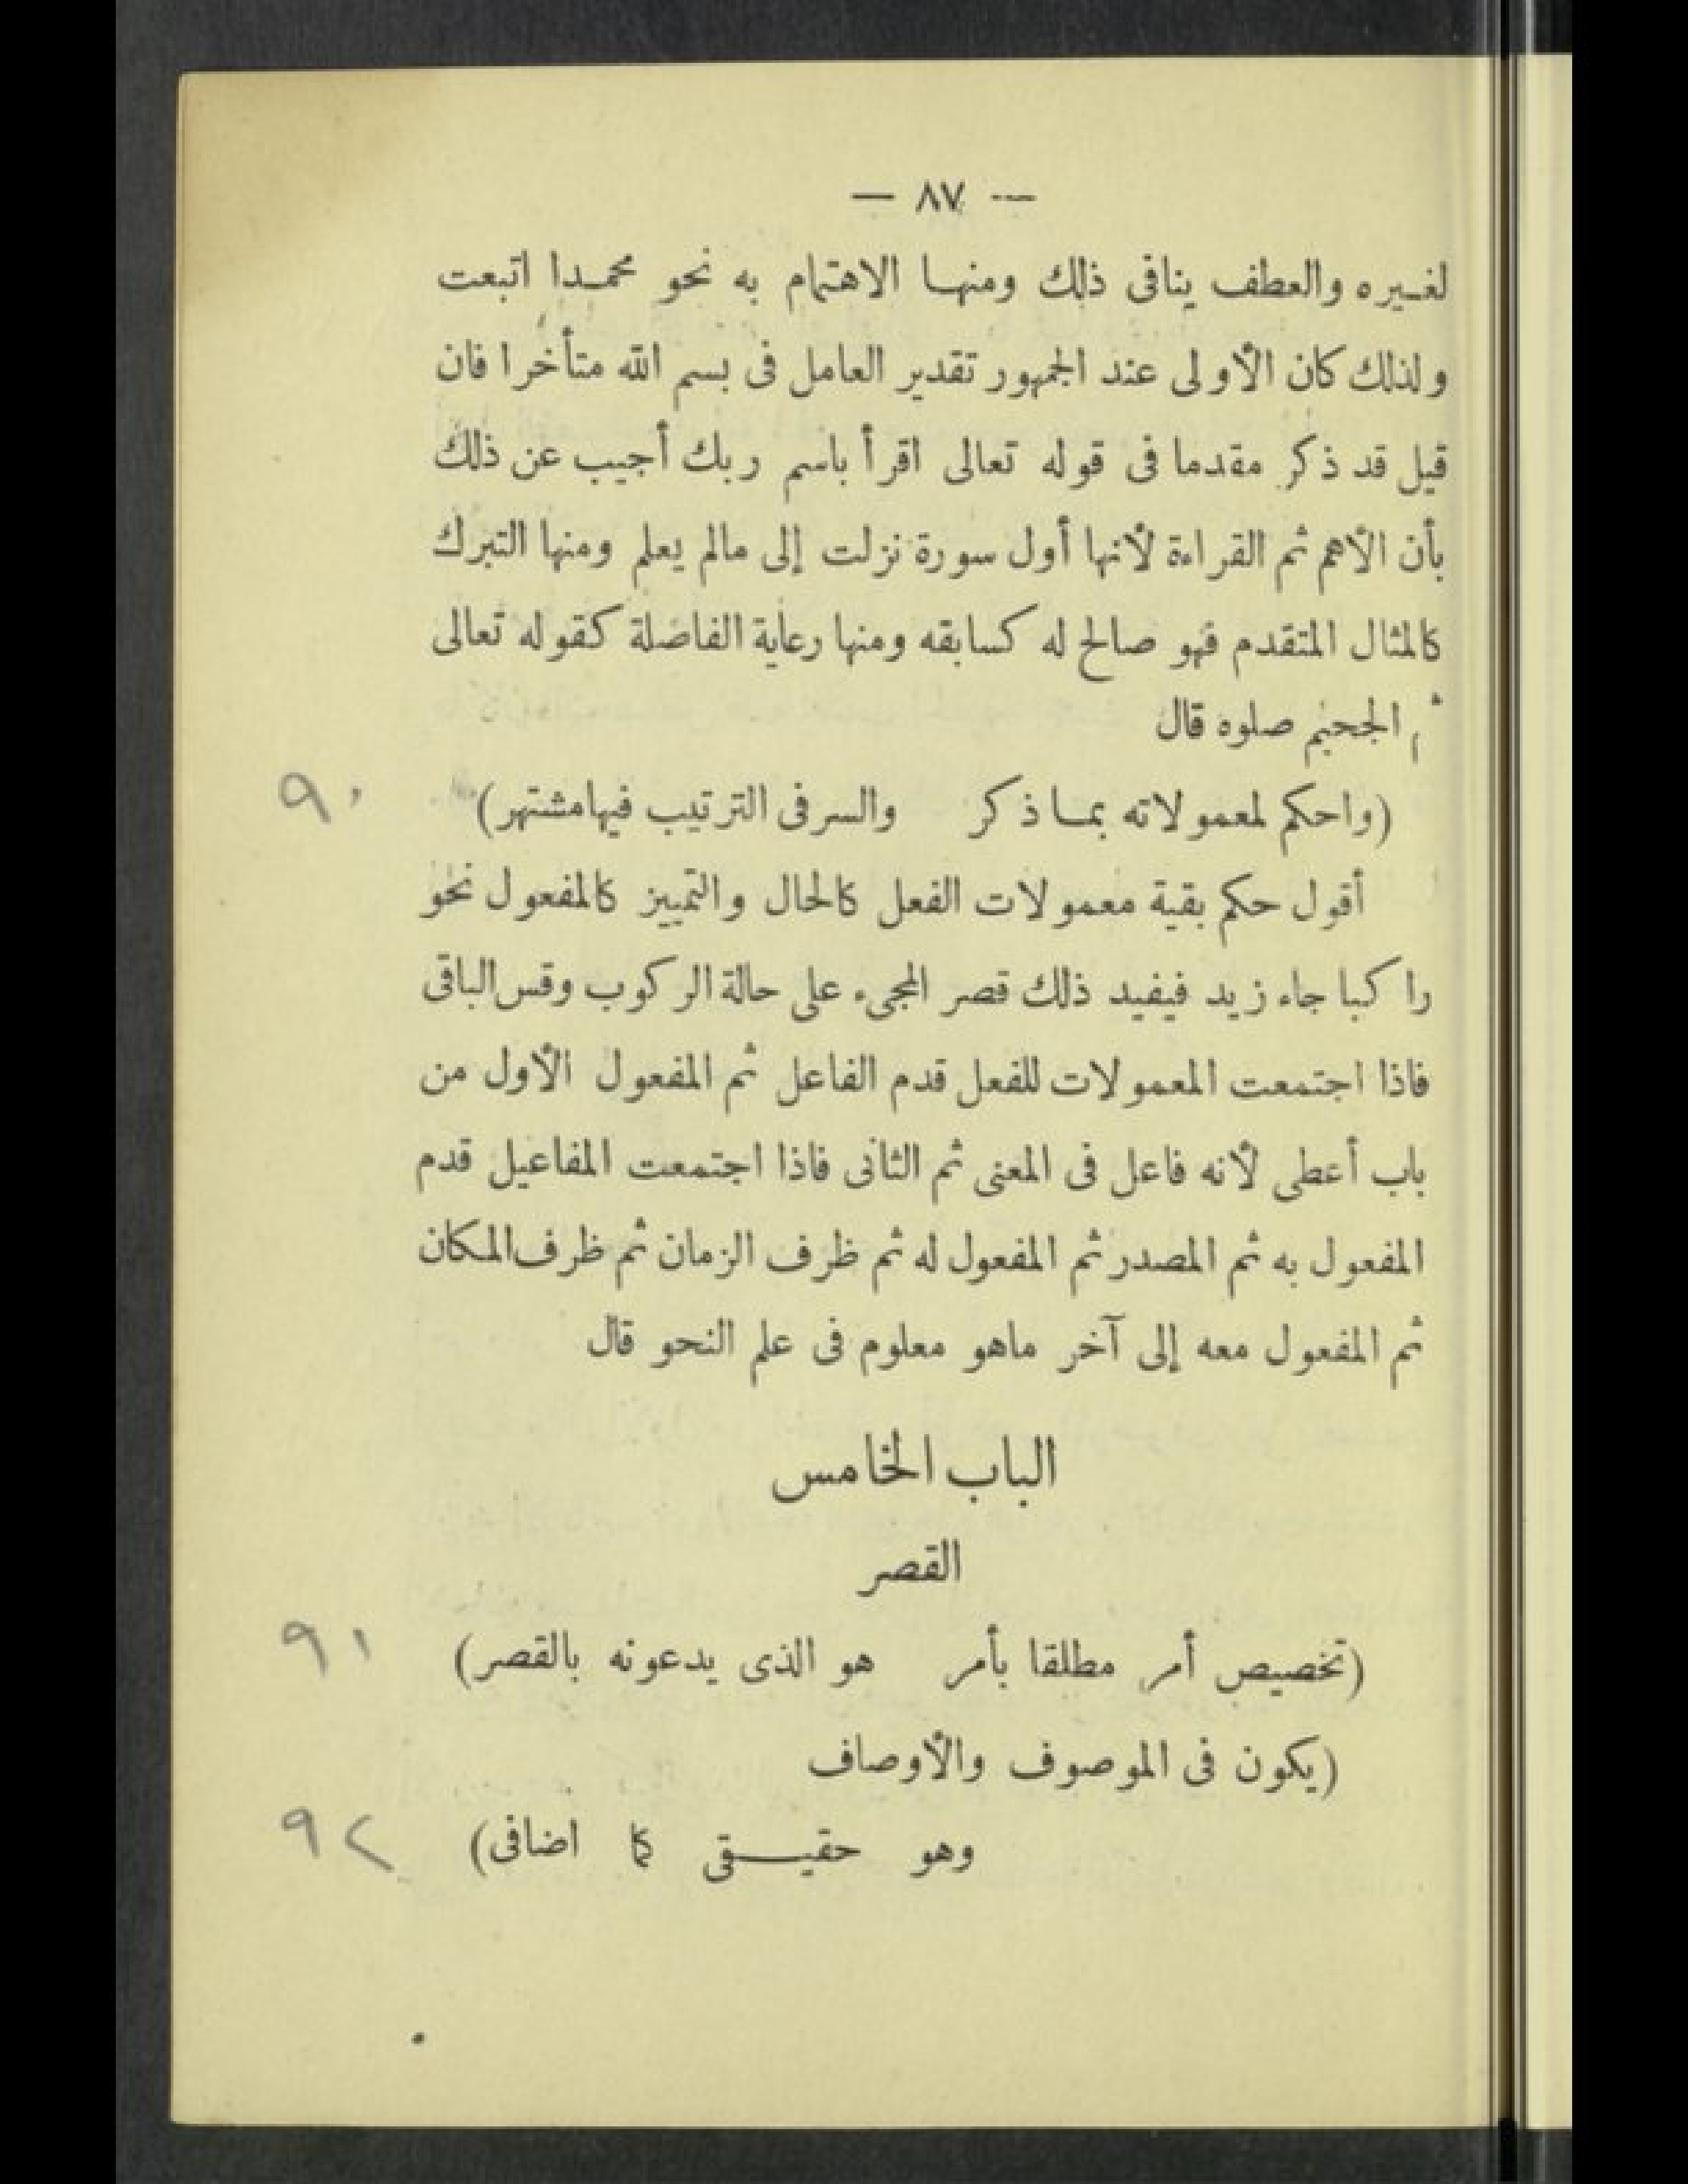 — ٨٧ —
لغيره والعطف ينافى ذلك ومنها الاهتمام به نحو محمدا اتبعت
ولذلك كان الأولى عند الجمهور تقدير العامل فى بسم الله متأخرا فان
قيل قد ذكر مقدما فى قوله تعالى اقرأ باسم ربك أجيب عن ذلك
بأن الأهم ثم القراءة لأنها أول سورة نزلت إلى مالم يعلم ومنها التبرك
كالمثال المتقدم فهو صالح له كسابقه ومنها رعاية الفاصلة كقوله تعالى
ثم الجحيم صلوه قال
(واحكم لمعمولاته بما ذكر والسر فى الترتيب فيها مشتهر) ٩٠
أقول حكم بقية معمولات الفعل كالحال والتمييز كالمفعول نحو
راكبا جاء زيد فيفيد ذلك قصر المجىء على حالة الركوب وقس الباقى
فاذا اجتمعت المعمولات للفعل قدم الفاعل ثم المفعول الأول من
باب أعطى لأنه فاعل فى المعنى ثم الثانى فاذا اجتمعت المفاعيل قدم
المفعول به ثم المصدر ثم المفعول له ثم ظرف الزمان ثم ظرف المكان
ثم المفعول معه إلى آخر ماهو معلوم فى علم النحو قال
الباب الخامس
القصر
(تخصيص أمر مطلقا بأمر هو الذى يدعونه بالقصر) ٩١
(يكون فى الموصوف والأوصاف
وهو حقيقى كما اضافى) ٩٢